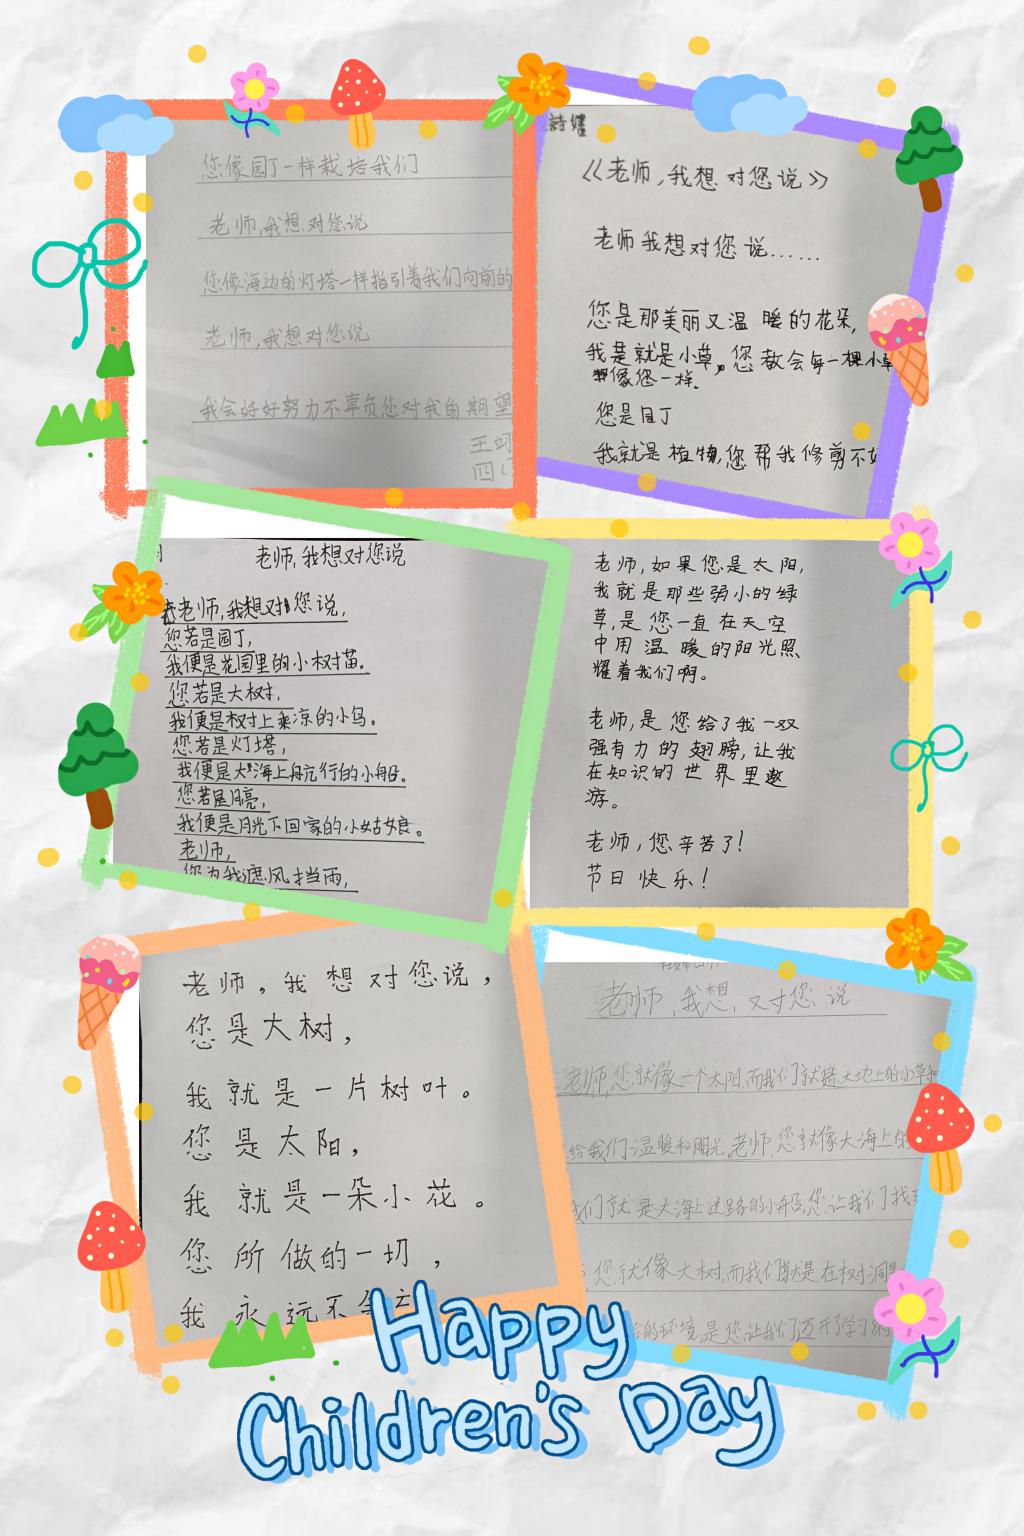 您像园丁一样栽培我们
老师,我想对您说
您像海边的灯塔一样指引着我们向前的
老师,我想对您说
我会好好努力不辜负您对我的期望
王
四(
《老师,我想对您说》
老师我想对您说……
您是那美丽又温暖的花朵,
我是就是小草,您教会每一棵小草
像您一样。
您是园丁
我就是植物,您帮我修剪不好
老师,我想对您说
老师,我想对您说,
您若是园丁,
我便是花园里的小树苗。
您若是大树,
我便是树上乘凉的小鸟。
您若是灯塔,
我便是大海上航行的小船。
您若是月亮,
我便是月光下回家的小姑娘。
老师,
您为我遮风挡雨,
老师,如果您是太阳,
我就是那些弱小的绿
草,是您一直在天空
中用温暖的阳光照
耀着我们啊。
老师,是您给了我一双
强有力的翅膀,让我
在知识的世界里遨
游。
老师,您辛苦了!
节日快乐!
老师,我想对您说,
您是大树,
我就是一片树叶。
您是太阳,
我就是一朵小花。
您所做的一切,
我永远不会
老师,我想,对您说
老师,您就像一个太阳,而我们就是大地上的小草
给我们温暖和阳光,老师,您就像大海上的
我们就是大海上迷路的小船,您让我们找
您就像大树,而我们就是在树洞
的环境,是您让我们迈开了学习的
Happy
Children's Day